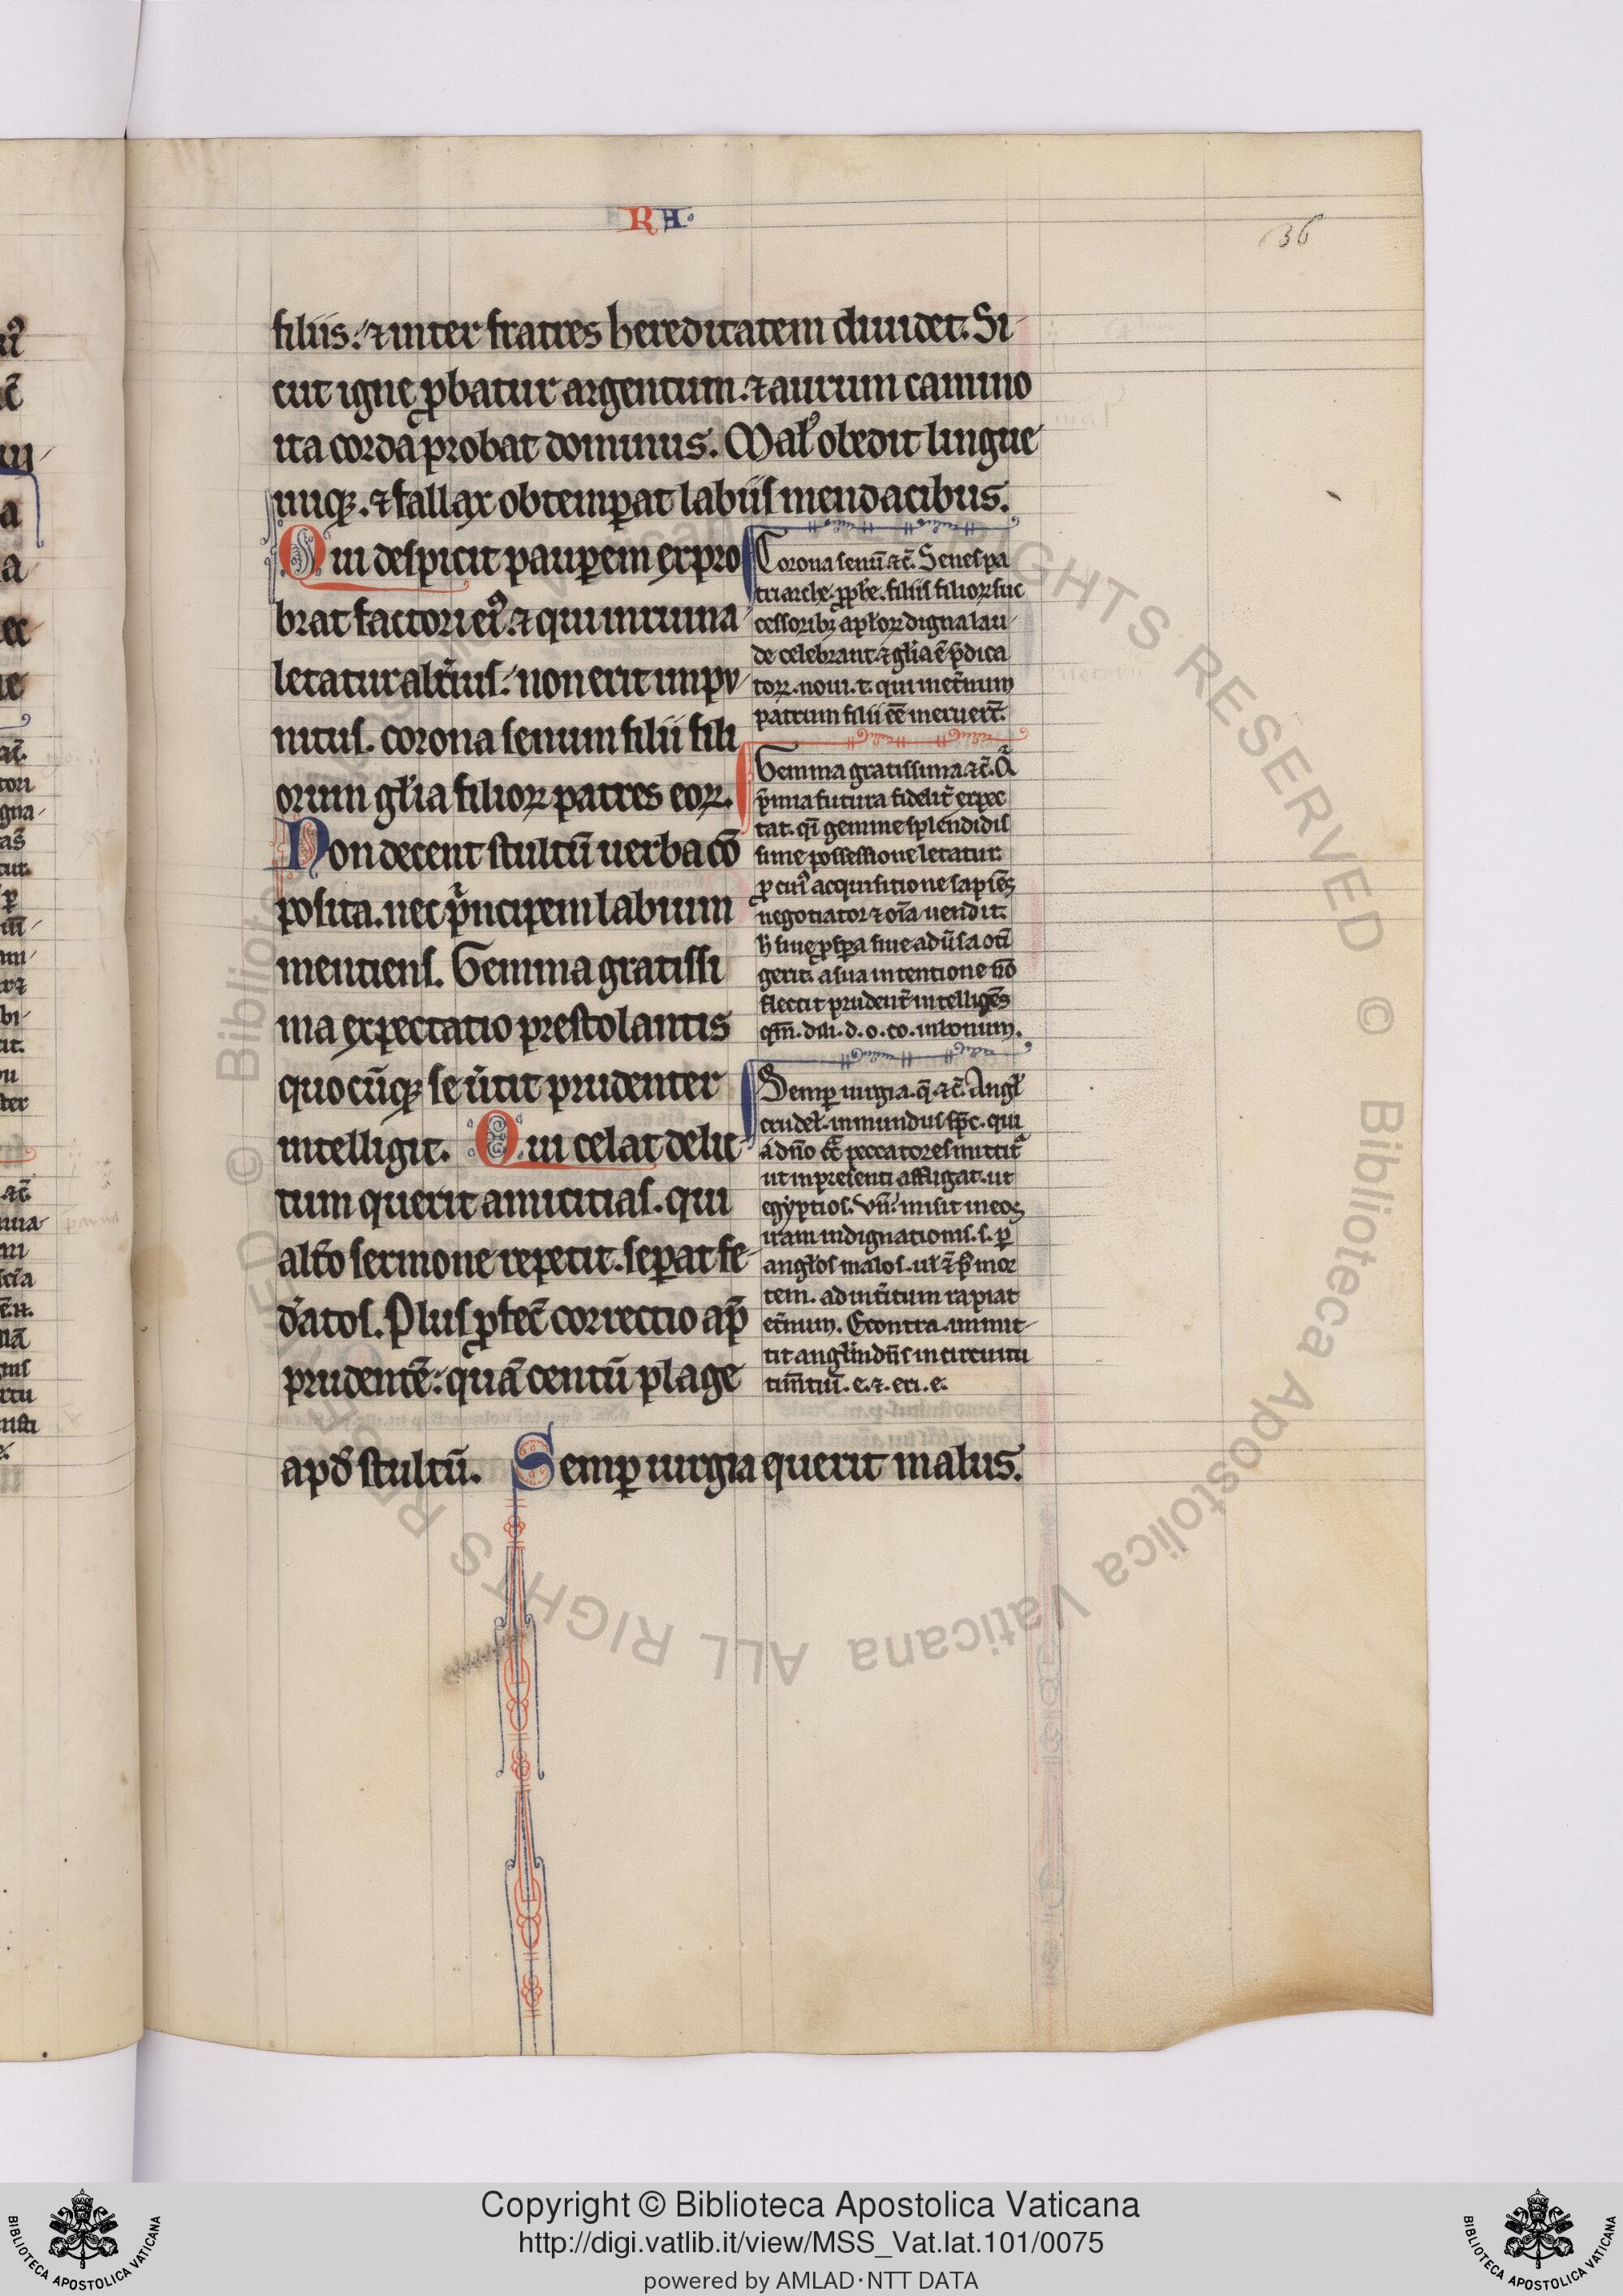 RA.
36
filiis. ⁊ inter fratres hereditatem diuidet. Si
cut igne ꝓbatur argentum. ⁊ aurum camino
ita corda probat dominus. Mal᷒ obedit lingue
iniq̨. ⁊ fallax obtemꝑat labiis mendacibus.
Qui despicit pauꝑem expro
brat factori ei᷒. ⁊ qui in ruina
letatur alt̾ius. non erit impu
nitus. corona senum filii fili
orum gl̃ia filioꝝ patres eoꝝ.
Non decent stultũ uerba cõ
posita. nec pͥncipem labium
mentiens. Gemma gratissi
ma expectatio prestolantis
quocũq̨ se ũtit prudenter
intelligit. Qui celat delic
tum querit amicitias. qui
alt̾o sermone repetit. seꝑat fe
d̾atos. Plus ꝓfec̃ correctio ap̃
prudentẽ. quã centũ plage
apđ stultũ. Semꝑ iurgia querit malus.
Corona senũ ⁊c̃. Senes pa
triarche. ꝓph̃e. filiis filioꝝ suc
cessoribꝫ apl̃oꝝ digna lau
de celebrant. ⁊ gl̃ia ẽ p̃dica
toꝝ. noui. t. qui inet̾num
patrum filii eẽ meruer̃t.
Gemma gratissima ⁊c̃. Qͥ
p̃mia futura fidelit̾ expec
tat. qͥ gemme splendidis
sime possessione letatur.
ꝓ cui᷒ acquisitione sapiẽs
negotiator ⁊ oĩa uendit.
h̾ siue ꝓsꝑa siue adũsa oti
gerit. a sua intentione nõ
flectit prudent̾ intelligẽs
qm̃. dili. d. o. co. in bonum.
Semꝑ iurgia. q̃. ⁊c̃. Angl̃
crudel̃. inmundus sp̃c. qui
a dño cͣ peccatores mittit̾
ut in presenti affligat. ut
egyptios. Vñ. misit in eos
iram indignationis. s. ꝑ
angl̃os malos. ul̃ ⁊ p᷒ mor
tem. ad int̾itum rapiat
et̾num. Econtra. inmit
tit angl̃m dñs in circuitu
tim̃tiũ. e. ⁊. eri. e.
Copyright © Biblioteca Apostolica Vaticana
http://digi.vatlib.it/view/MSS_Vat.lat.101/0075
powered by AMLAD·NTT DATA
BIBLIOTECA APOSTOLICA VATICANA
BIBLIOTECA APOSTOLICA VATICANA
© Biblioteca Apostolica Vaticana ALL RIGHTS RESERVED